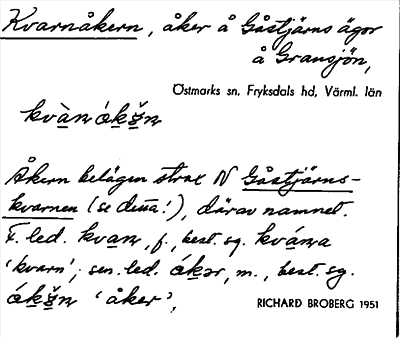 Kvarnåkern, åker å Gåstjärns ägor
å Gransjön,
Östmarks sn, Fryksdals hd, Värml. län
Åkern belägen strax N Gåstjärns-
kvarnen (se detta!), därav namnet.
F. led. kvan, f., best. sg. kvána
'kvarn'; sen. led. ákər, m., best. sg.
'åker',
RICHARD BROBERG 1951